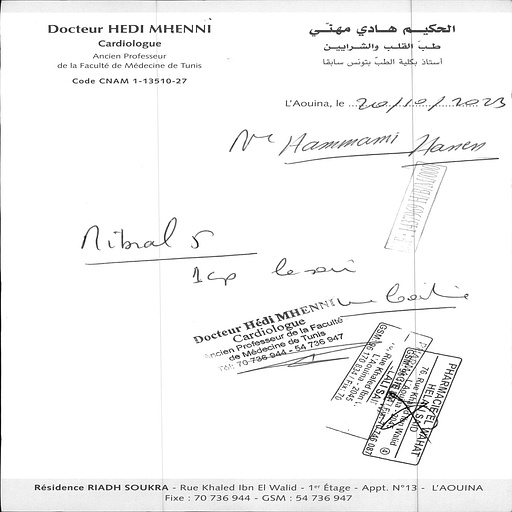 Docteur HEDI MHENNI
Cardiologue
Ancien Professeur
de la Faculté de Médecine de Tunis
Code CNAM 1-13510-27
الحكيم هادي مهنّي
طبّ القلب والشرايين
أستاذ بكلية الطبّ بتونس سابقا
L'Aouina, le 20/10/2023
Hammami Hanen
Nibral 5
1cp le soir
Docteur Hédi MHENNI
Cardiologue
Ancien Professeur de la Faculté
de Médecine de Tunis
Tél: 70 736 944 - 54 736 947
PHARMACIE EL WAHAT
76, Rue Khaled Ibn Walid
Résidence RIADH SOUKRA - Rue Khaled Ibn El Walid - 1er Étage - Appt. N°13 - L'AOUINA
Fixe : 70 736 944 - GSM : 54 736 947